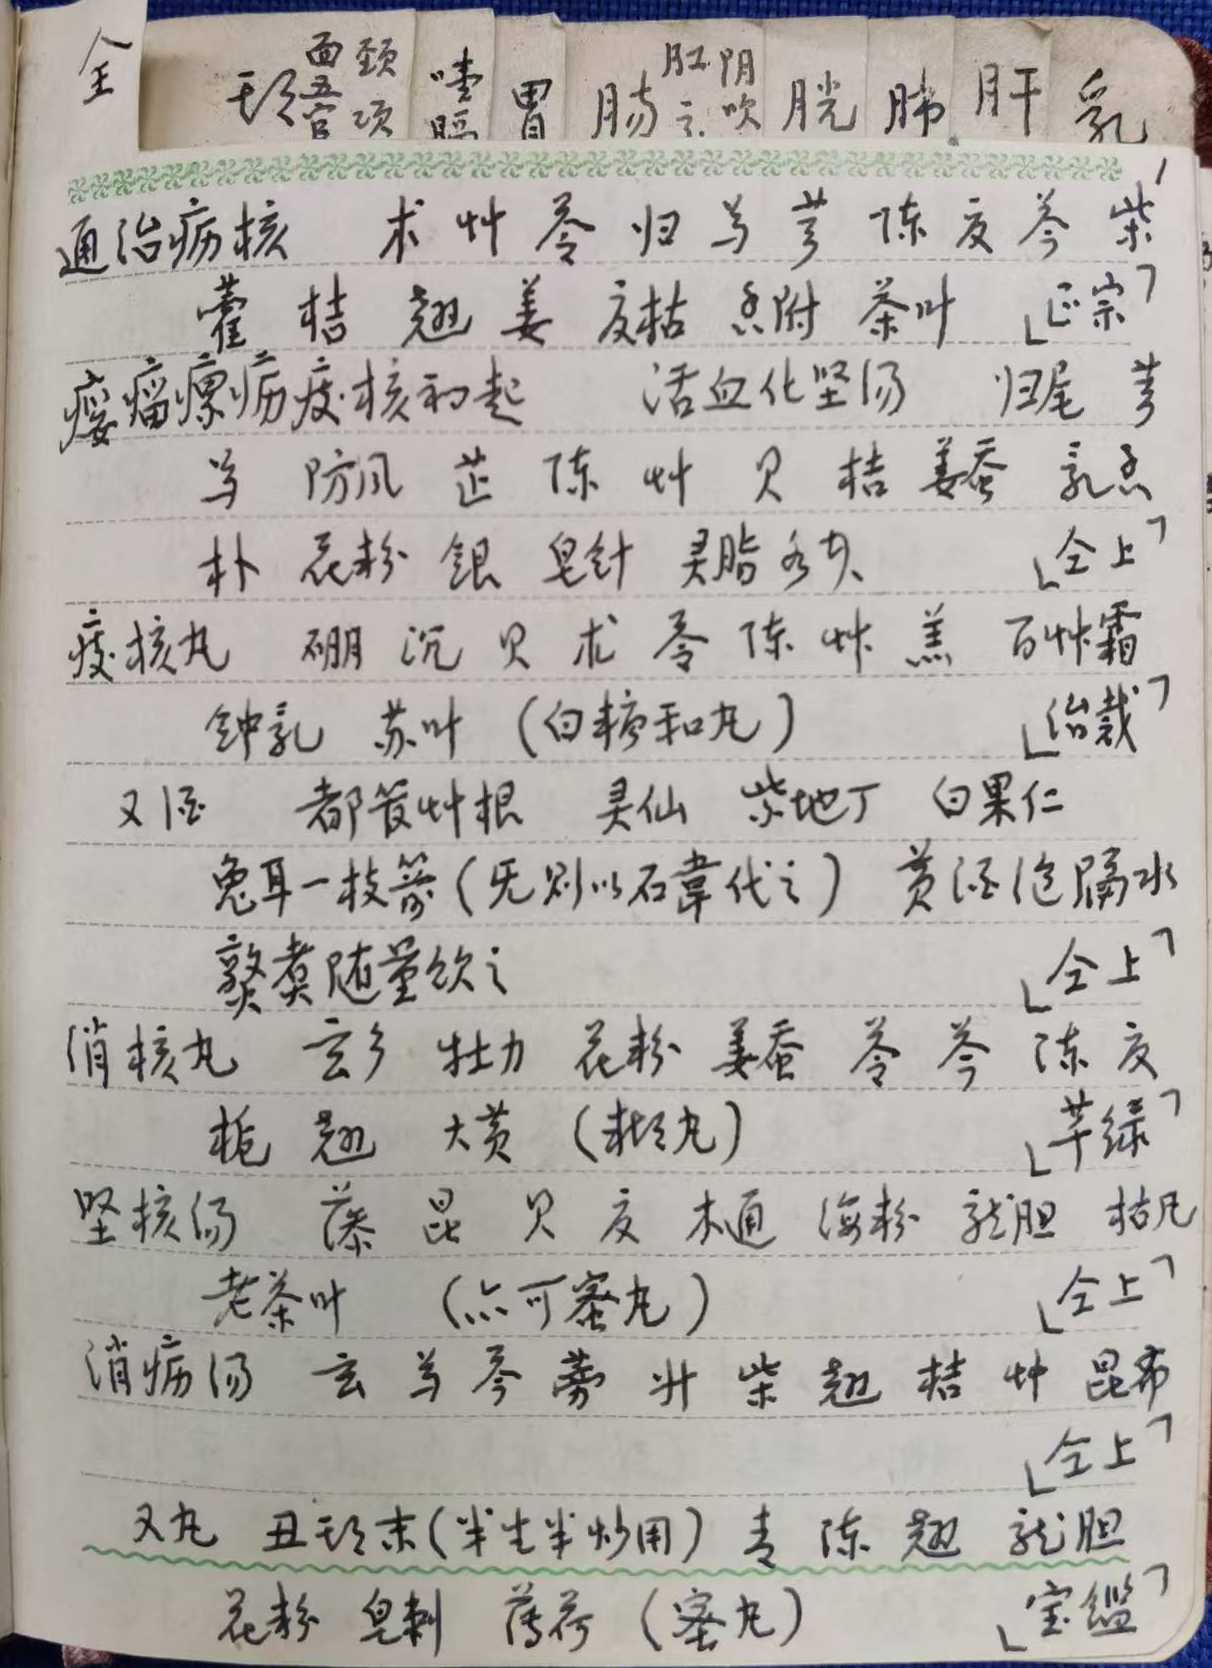 全 头 面五官 颈项 喉 胃 肠 肛 阴吹 胱 肺 肝 乳
通治疬核 术 艸 苓 归 芍 芎 陈 夏 芩 柴
藿 桔 翘 姜 夏枯 香附 茶叶 「正宗」
瘿瘤瘰疬痰核初起 活血化坚汤 归尾 芎
芍 防风 芷 陈 艸 贝 桔 姜蚕 乳香
朴 花粉 銀 皂针 灵脂 「仝上」
痰核丸 硼 沉 贝 术 苓 陈 艸 羔 百艸霜
钟乳 苏叶 (白糖和丸) 「治裁」
又酒 都管艸根 灵仙 紫地丁 白果仁
兔耳一枝箭(无则以石韋代之) 黄酒泡隔水
燉煮随量饮之 「仝上」
消核丸 玄参 牡力 花粉 姜蚕 苓 芩 陈 夏
栀 翘 大黄 (糊丸) 「萃绿」
坚核汤 藻 昆 贝 夏 木通 海粉 龙胆 枯凡
老茶叶 (亦可蜜丸) 「仝上」
消疬汤 玄 芍 芩 蒡 升 柴 翘 桔 艸 昆布
「仝上」
又丸 丑头末(半生半炒用) 青 陈 翘 龙胆
花粉 皂刺 薄荷 (蜜丸) 「宝鑑」